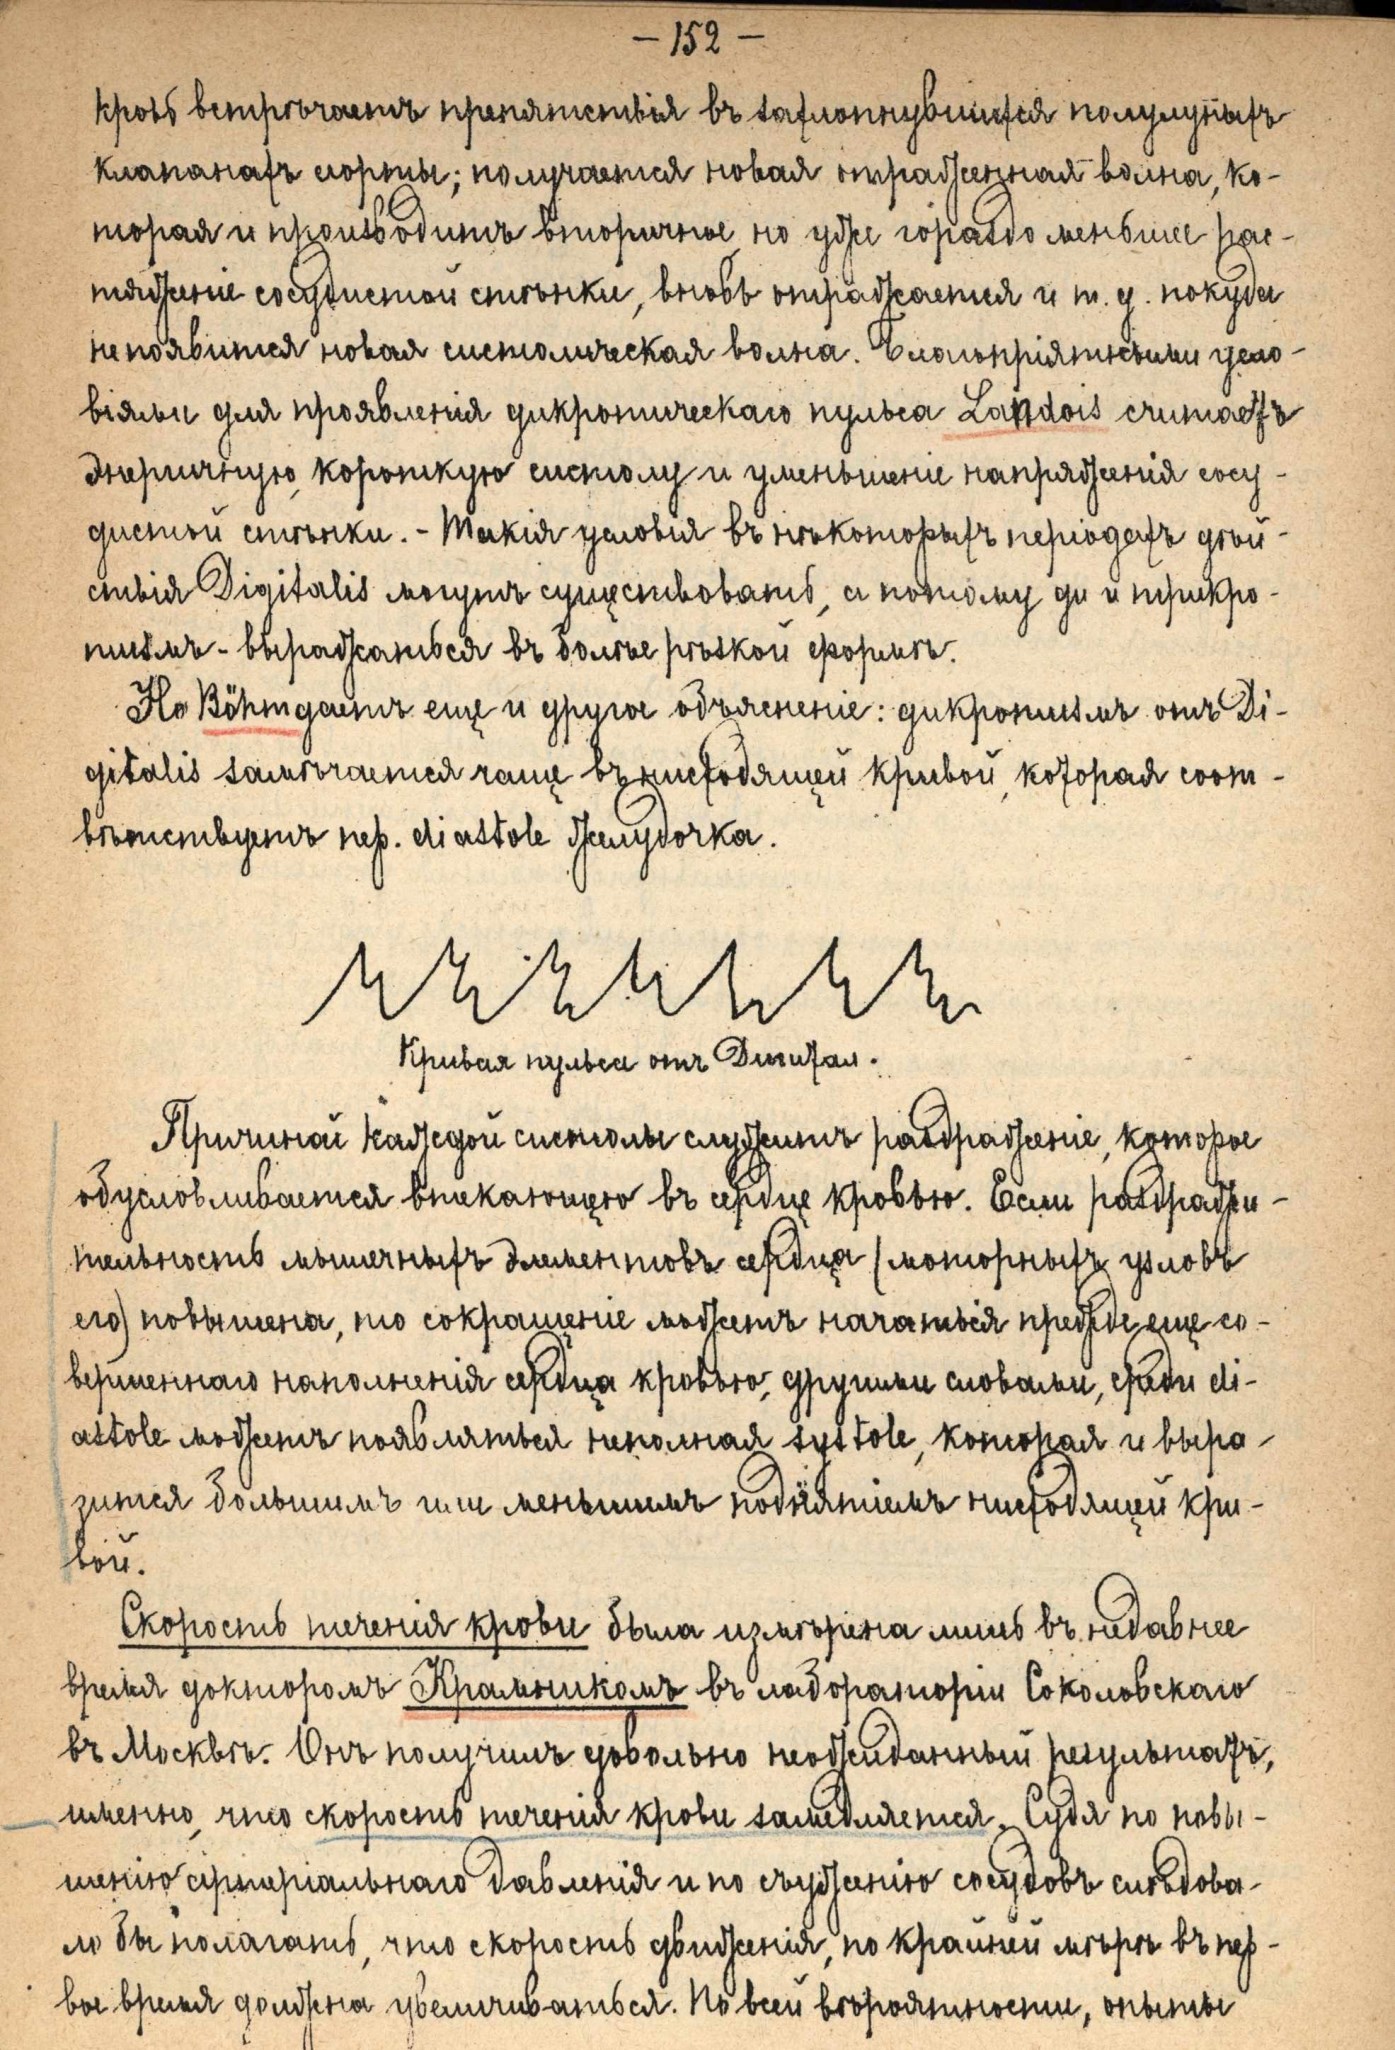 — 152 —
кровь встрѣчаетъ препятствія въ захлопнувшихся полулуныхъ
клапанахъ аорты; получается новая отраженная волна, ко-
торая и производитъ вторичное, но уже гораздо меньшее рас-
тяженіе сосудистой стѣнки, вновь отражается и т. д. покуда
непоявится новая систолическая волна. Благопріятнѣйшими усло-
віями для проявленія дикротическаго пульса Landois считаетъ
энеричную, короткую систолу и уменьшеніе напряженія сосу-
дистой стѣнки. - Такія условія въ нѣкоторыхъ періодахъ дѣй-
ствія Digitalis могутъ существовать, а потому ди и трикро-
тизмъ - выражаться въ болѣе рѣзкой формѣ.
Но Böhm даетъ еще и другое объясненіе: дикротизмъ отъ Di-
gitalis замѣчается чаще въ нисходящей кривой, которая соот-
вѣтствуетъ пер. diastole желудочка.
Кривая пульса отъ Дигитал.
Причиной каждой систолы служитъ раздраженіе, которое
обусловливается втекающею въ сердце кровью. Если раздражи-
тельность мышечныхъ элементовъ сердца (моторныхъ узловъ
его) повышена, то сокращеніе можетъ начаться прежде еще со-
вершеннаго наполненія сердца кровью, другими словами, среди di-
astole можетъ появляться неполная systole, которая и выра-
зится большимъ или меньшимъ поднятіемъ нисходящей кри-
вой.
Скорость теченія крови была измѣрена лишь въ недавнее
время докторомъ Крамникомъ въ лабораторіи Соколовскаго
въ Москвѣ. Онъ получилъ довольно неожиданный результатъ,
именно, что скорость теченія крови замедляется. Судя по повы-
шенію артеріальнаго давленія и по съуженію сосудовъ слѣдова-
ло бы полагать, что скорость движенія, по крайней мѣрѣ въ пер-
вое время должна увеличиваться. По всей вѣроятности, опыты